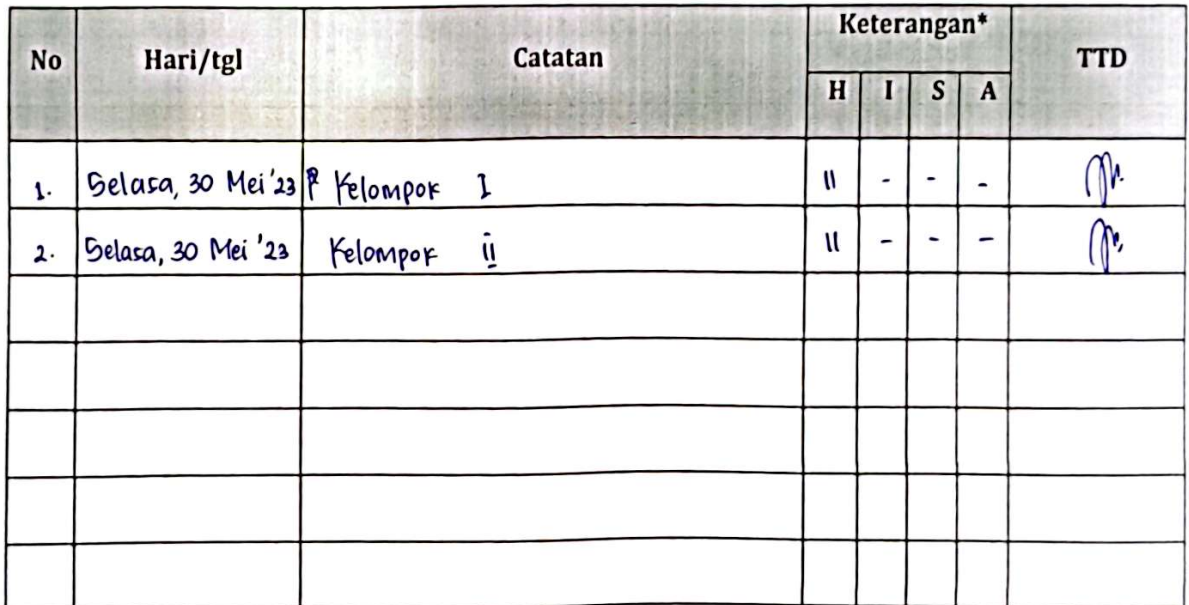 No Hari/tgl Catatan Keterangan* TTD
H I S A
1. Selasa, 30 Mei '23 Kelompok I 11 - - -
2. Selasa, 30 Mei '23 Kelompok ii 11 - - -